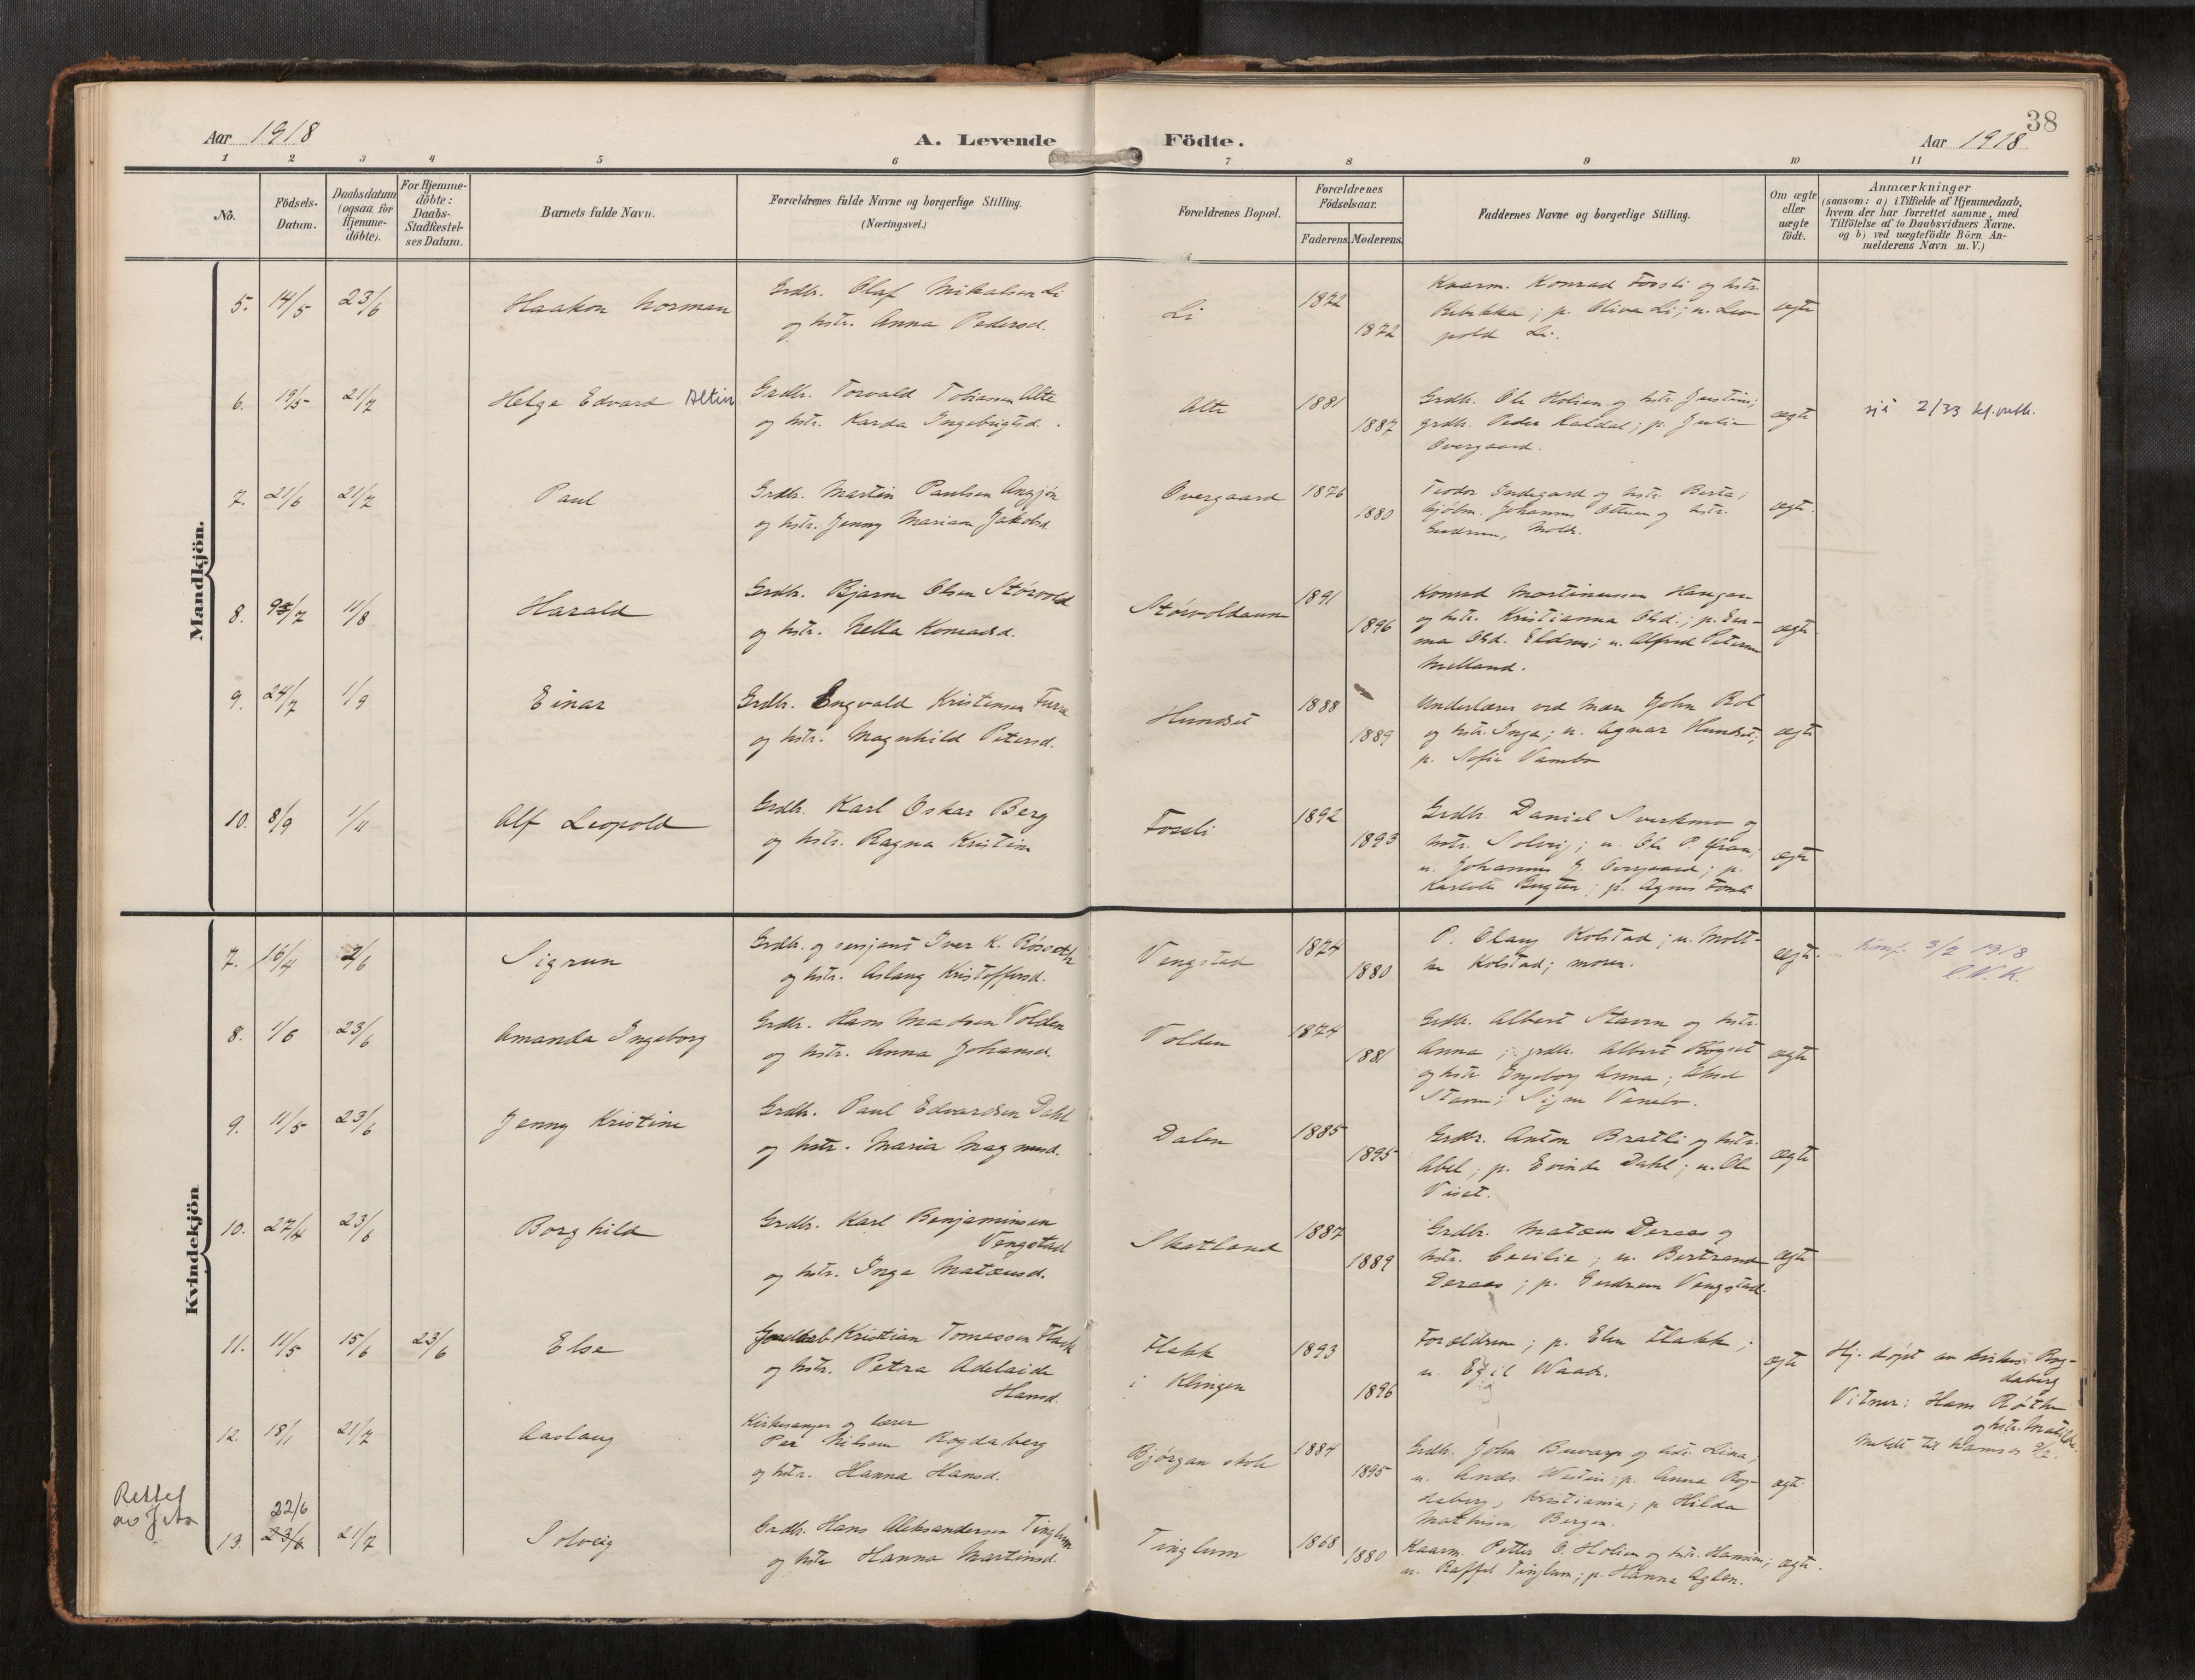 38
Aar 1918
A. Levende
Födte.
Aar 1918
1 2 3 4 5 6 7 8 9 10 11
No.
Födsels-
Datum.
Daabsdatum
(ogsaa for
Hjemme-
döbte).
For Hjemme-
döbte:
Daabs-
Stadfæstel-
ses Datum.
Barnets fulde Navn.
Forældrenes fulde Navne og borgerlige Stilling.
(Næringsvei.)
Forældrenes Bopæl.
Forældrenes
Födselsaar.
Faderens. Moderens.
Faddernes Navne og borgerlige Stilling.
Om ægte
eller
uægte
födt.
Anmærkninger
(saasom: a) i Tilfælde af Hjemmedaab,
hvem der har forrettet samme, med
Tilföielse af to Daabsvidners Navne.
og b) ved uægtefödte Börn An-
melderens Navn m. V.)
Mandkjön.
5. 14/5 23/6 Haakon Norman
Grdbr. Olaf Mikalsen Li
og hstr. Anna Pedersd.
Li 1872 1872
Kaarm. Konrad Forsli og hstr.
Rebekka; p. Oliva Li; u. Leo-
pold Li.
ægte
6. 19/5 21/7 Helge Edvard Altin
Grdbr. Torvald Tobiassen Alte
og hstr. Karda Ingebrigtsd.
Alte 1881 1887
Grdb. Ole Holien og hstr. Justine;
grdb. Peder Kaldal; p. Julie
Overgaard.
ægte
sjå 2/33
7. 21/6 21/7 Paul
Grdbr. Martin Paulsen
og hstr. Jenny Mariam Jakobsd.
Overgaard 1876 1880
Teodor og hstr. Berta;
Johannes Ottesen og hstr.
Gudrun,
ægte.
8. 11/8 Harald
Grdbr. Bjarne Olsen Störvold
og hstr. Nella Konradsd.
Störvoldaune 1891 1896
Konrad Martinussen Haugan
og hstr. Kristianna Olsd.; p. Em-
ma Olsd. Eldnes; u. Alfred Petersen
Melland.
ægte
9. 24/7 1/9 Einar
Grdbr. Engvald Kristensen Furre
og hstr. Magnhild Petersd.
Hundset 1888 1889
John Rol
og hstr. Inga; u. Agnar Hundset;
p. Sofie Vambo
ægte
10. 8/9 1/11 Alf Leopold
Grdbr. Karl Oskar Berg
og hstr. Ragna Kristine
Fossli 1892 1893
Grdbr. Daniel Sverkmo og
hstr. Solveig; u. Ole P.
u. Johannes J. Overgaard; p.
p. Agnes
ægte
Kvindekjön
7. 16/4 2/6 Sigrun
Grdbr. og sersjant Iver K. Rösseth
og hstr. Aslaug Kristoffersd.
Vengstad 1874 1880
P. Olaug Kolstad; u. Molt-
ke Kolstad; moren.
ægte.
Konf. 3/2 1918
8. 1/6 23/6 Amanda Ingeborg
Grdbr. Hans Madsen Volden
og hstr. Anna Johansd.
Volden 1874 1881
Grdb. Albert Stavrn og hstr.
Anna; grdb. Albert Rögset
og hstr. Ingeborg Anna;
ægte
9. 11/5 23/6 Jenny Kristine
Grdbr. Paul Edvardsen Dahl
og hstr. Maria Magnusd.
Dalen 1885 1895
Grdbr. Anton Bratli og hstr.
Abel; p. Evinda Dahl; u. Ole
Viset.
ægte
10. 27/4 23/6 Borghild
Grdbr. Karl Benjaminsen
Vengstad
og hstr. Inga Matæusd.
Skatland 1887 1889
Grdbr. Matæus Deraas og
hstr. Cecilie; u. Bertrand
Deraas; p. Gudrun Vengstad.
ægte
11. 11/5 15/6 23/6 Else
Kristian Tomassen Flakk
og hstr. Petra Adelaide
Hansd.
Flakk
i Klingen
1893 1896
Forældrene; p. Elen Flakk;
u. Egil Waade.
ægte
Hj. döpt av kirkes. Rog-
daberg
Vitner: Hans Röthe
og hstr. Matilde.
12. 18/1 21/7 Aaslaug
Kirkesanger og lærer
Per Nilsen Rogdaberg
og hstr. Hanna Hansd.
Bjørgan skole 1884 1895
Grdb. John Buvarp og hstr. Lina;
u. Andr. p. Anna Rog-
daberg, Kristiania; p. Hilda
Mathisen, Bergen.
ægte
Meldt til Namsos
Rettet
22/6
13. 23/6 21/7 Solveig
Grdbr. Hans Aleksandersen Tinglum
og hstr. Hanna Martinsd.
Tinglum 1868 1880
Kaarm. Petter O. Holien og hstr. Hansine;
u. Raffel Tinglum; p. Hanna Aglen.
ægte.